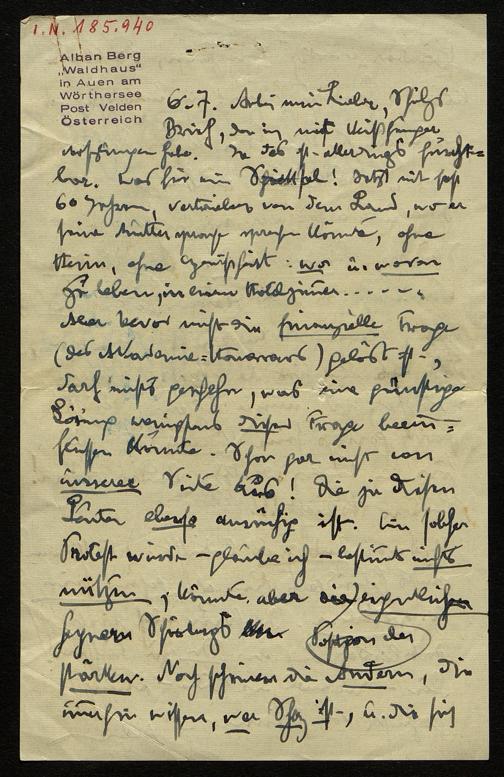 I.N. 185.940
Alban Berg
„Waldhaus"
in Auen am
Wörthersee
Post Velden
Österreich
6.7. mein Lieber, Schbgs
Brief, den ich mit
empfangen habe. Ja das ist allerdings furcht-
bar. Was für ein Schicksal! Jetzt mit fast
60 Jahren, vertrieben von dem Land, wo er
seine Muttersprache sprechen könnte, ohne
Heim, ohne : wo u. wovon
zu leben, in einem Hotelzimmer.....
Aber bevor nicht die finanzielle Frage
(des Akademie=Honorars) gelöst ist,
darf nichts geschehn, was eine günstige
Lösung wenigstens dieser Frage beein=
flussen könnte. Schon gar nicht von
unserer Seite aus! Die ja diesen
Leuten ebenso anrüchig ist. Ein solcher
Protest würde – glaube ich – bestimmt nichts
nützen, könnte aber die eigentlichen
Gegnern Schönbergs Position der
stärken. Noch schienen die Andern, die
immerhin wissen, wer Schbg ist, u. die sich